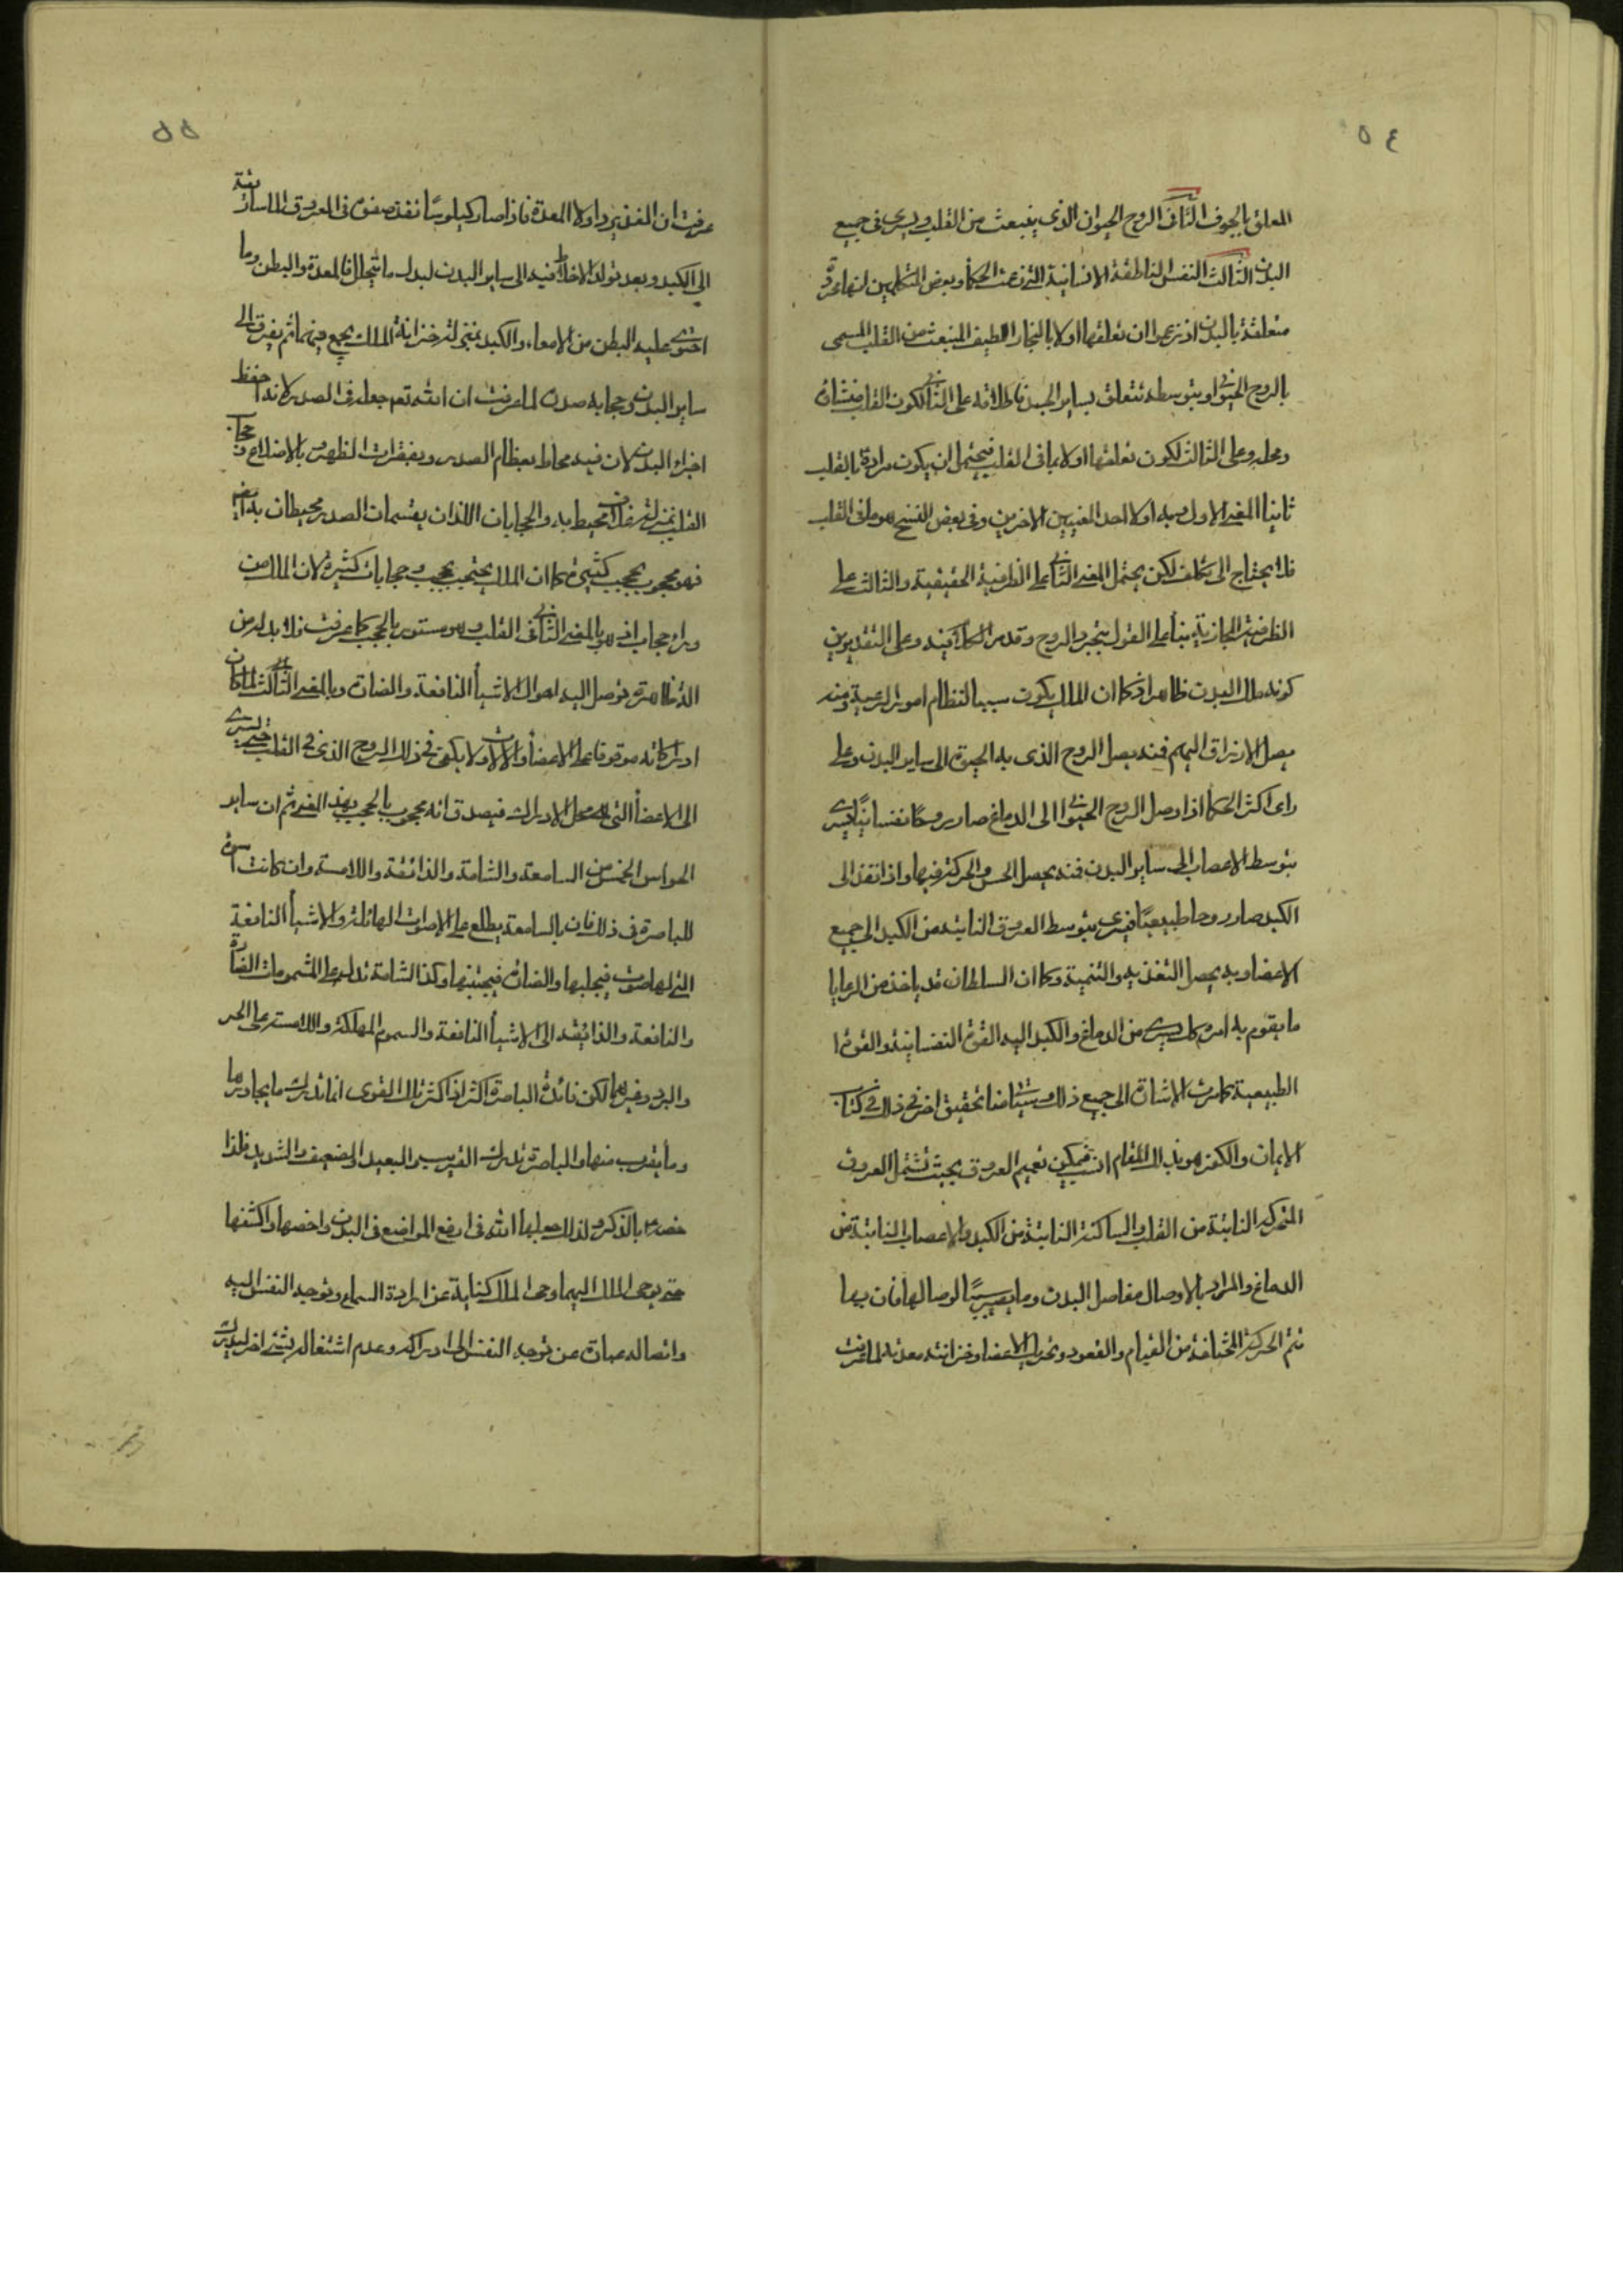 ٥٤
المعلق بالجوف الثانى الروح الحيوانى الذى ينبعث من القلب ويسرى فى جميع
البدن الثالث النفس الناطقة الانسانية التى زعمت الحكما وبعض المتكلمين انها مجردة
متعلقة بالبدن اذ زعموا ان تعلقها اولا بالبخار اللطيف المنبعث من القلب المسمى
بالروح الحيوانى وبتوسطه تتعلق بساير الجسد فاطلاقه على الثانى لكون القلب منشائه
ومحله وعلى الثالث لكون تعلقها اولا بما فى القلب فيحتمل ان يكون مراده بالقلب
ثانيا المعنى الاول وبه اولا احد المعنيين الاخرين وفى بعض النسخ هو ما فى القلب
فلا يحتاج الى تكلف لكن يحتمل المعنى الثانى على الظرفية الحقيقية والثالث على
الظرفية المجازية بناء على القول بتجرد الروح وقد مر الكلام فيه وعلى التقديرين
كونه ملك البدن ظاهر اذ كما ان الملك يكون سببا لنظام امور الرعية ومنه
يصل الارزاق اليهم فمنه يصل الروح الذى به الحيوة الى ساير البدن وعلى
راى اكثر الحكما اذا وصل الروح الحيوانى الى الدماغ صار روحا نفسانيا يسرى
بتوسط الاعصاب الى ساير البدن فمنه يحصل الحس والحركة فيها واذا نفذ الى
الكبد صار روحا طبيعيا فيسرى بتوسط العروق النابتة من الكبد الى جميع
الاعضا وبه يحصل التغذيه والتنمية وكما ان السلطان قد ياخذ من الرعايا
ما يقوم به امره كذلك يسرى من الدماغ والكبد اليه القوة النفسانية والقوة ا
الطبيعية كما مرت الاشارة الى جميع ذلك وسياتى منا تحقيق اخر فى ذلك فى كتاب
الايمان والكفر هو بذلك المقام انسب فيمكن تعميم العروق بحيث تشتمل العروق
المتحركه النابتة من القلب والساكنة النابتة من الكبد والاعصاب النابتة من
الدماغ والمراد بالاوصال مفاصل البدن وما يصير سببا لوصالها فان بها
تتم الحركة المختلفة من القيام والقعود وتحريك الاعضا وخزانته معدته لما عرفت
٥٥
عرفت ان الغذا يرد اولا المعدة فاذا صار كيلوسا نفذ صفوه فى العروق الماساريقية
الى الكبد وبعد تولد الاخلاط فيه الى ساير البدن لبدل ما يتحلل فالمعدة والبطن وما
احتوى عليه البطن من الامعاء والكبد بمنزلة خزانة الملك يجمع فيها ثم يفرق الى
ساير البدن وحجابه صدره لما عرفت ان الله تعم جعله فى الصدر لانه احفظ
اجزاء البدن لان فيه محاط بعظام الصدر وبفقرات الظهر وبالاضلاع وحجاب
القلب بمنزلة غلاف يحيط به والحجابان اللذان يقسمان الصدر محيطان به ايضا
فهو محجوب بحجب كثيرة كما ان الملك يحتجب بحجب وحجابات كثيرة لان الملك من
وراء حجاب اذ هو بالمعنى الثانى فى القلب وهو مستور بالحجب كما عرفت فلا بد له من
الة ظاهرة توصل اليه احوال الاشياء النافعة والضارة وبالمعنى الثالث لما كان
ادراكاته موقوفا على الاعضاء والآلات ولا يكفى فى ذلك الروح الذى فى القلب حتى يسرى
الى الاعضاء التى هى محل الادراك فيصدق انه محجوب بالحجب بهذا المعنى ثم ان ساير
الحواس الخمس من السامعة والشامة والذائقة واللامسة وان كانت اسوة
للباصرة فى ذلك فان بالسامعة يطلع على الاصوات الهائلة والاشياء النافعة
التى لها صوت فيجلبها والضارة فيجتنبها وكذا الشامة تدله على المشمومات الضارة
والنافعة والذائقة الى الاشياء النافعة والسموم المهلكة واللامسة على الحر
والبرد وغيرهما لكن فائدة الباصرة اكثر اذ اكثر تلك القوى انما تدرك ما يجاورها
وما يقرب منها والباصرة تدرك القريب والبعيد والضعيف والشديد فلذا
خصها بالذكر ولذلك جعلها الله فى ارفع المواضع فى البدن واحصنها واكشفها
حتى يوحى الملك اليهما وحى الملك كناية عن ارادة السماع وتوجه النفس اليه
وانصاته عبارة عن توجه النفس الى ادراكه وعدم اشتغاله بشئ اخر ليدرك